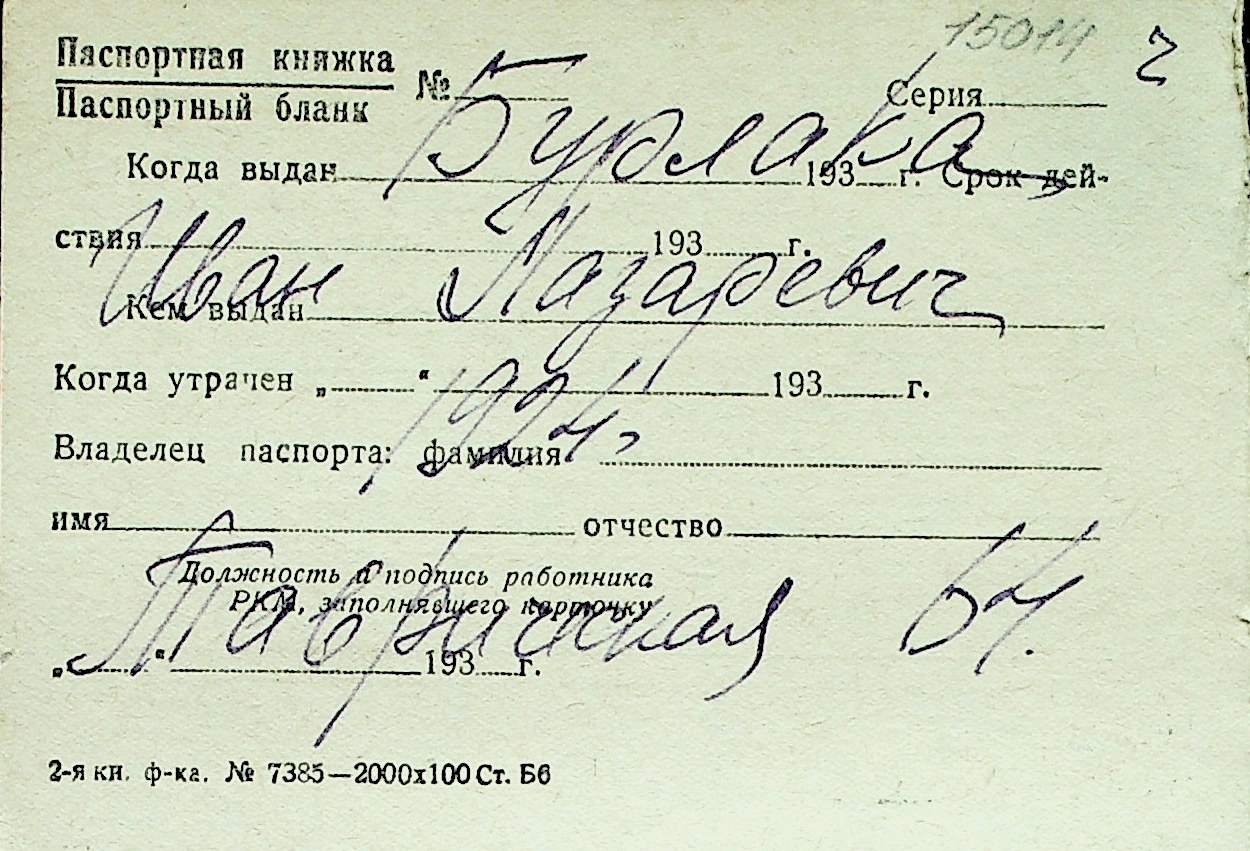 15014 2
Паспортная книжка
Паспортный бланк № Серия
Бурлака
Когда выдан 193 г. Срок дей-
ствия 193 г.
Иван Лазаревич
Кем выдан
Когда утрачен „ “ 193 г.
1924
Владелец паспорта: фамилия
имя отчество
Должность и подпись работника
РКМ, заполнявшего карточку
Таврическая 54.
„ “ 193 г.
2-я кн. ф-ка. № 7385—2000х100 Ст. Б6